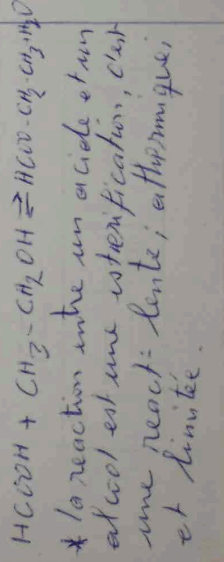 HCOOH + CH3-CH2OH ⇌ HCOO-CH2-CH3+H2O
* la reaction entre un acide et un
alcool est une estérification, c'est
une react= lente, athermique,
et limitée.